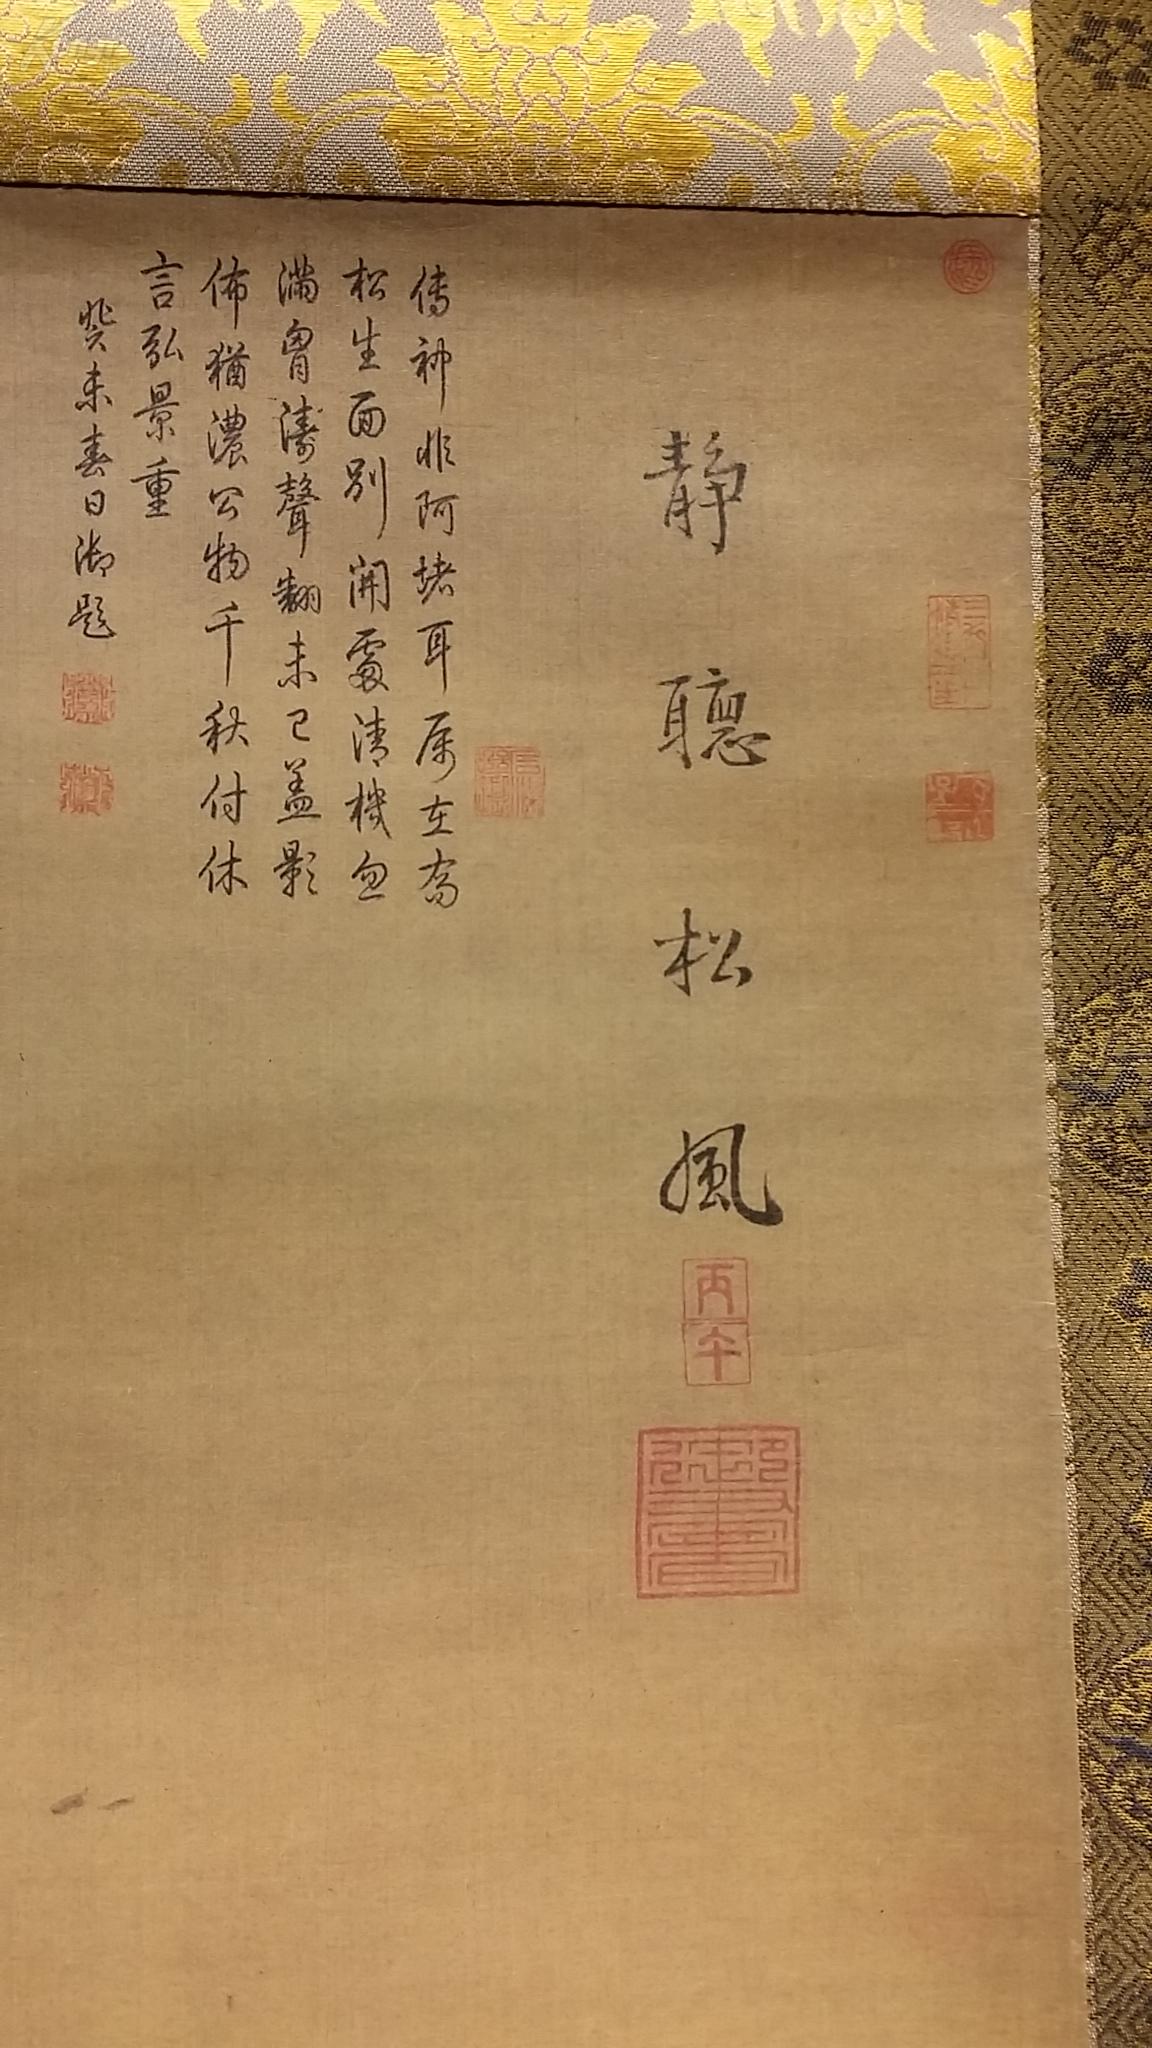 靜聽松風
丙午
傳神非阿堵耳属在喬
松生面別開處清機忽
滿胷濤聲翻未已蓋影
佈猶濃公物千秋付休
言弘景重
癸未春日御題